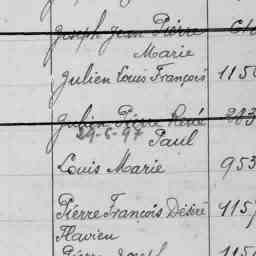 Joseph Jean Pierre
Marie
Julien Louis François 115
Julien Pierre René 283
29-6-97 Paul
Louis Marie 953
Pierre François Désiré 115
Flavien
Pierre Joseph 115